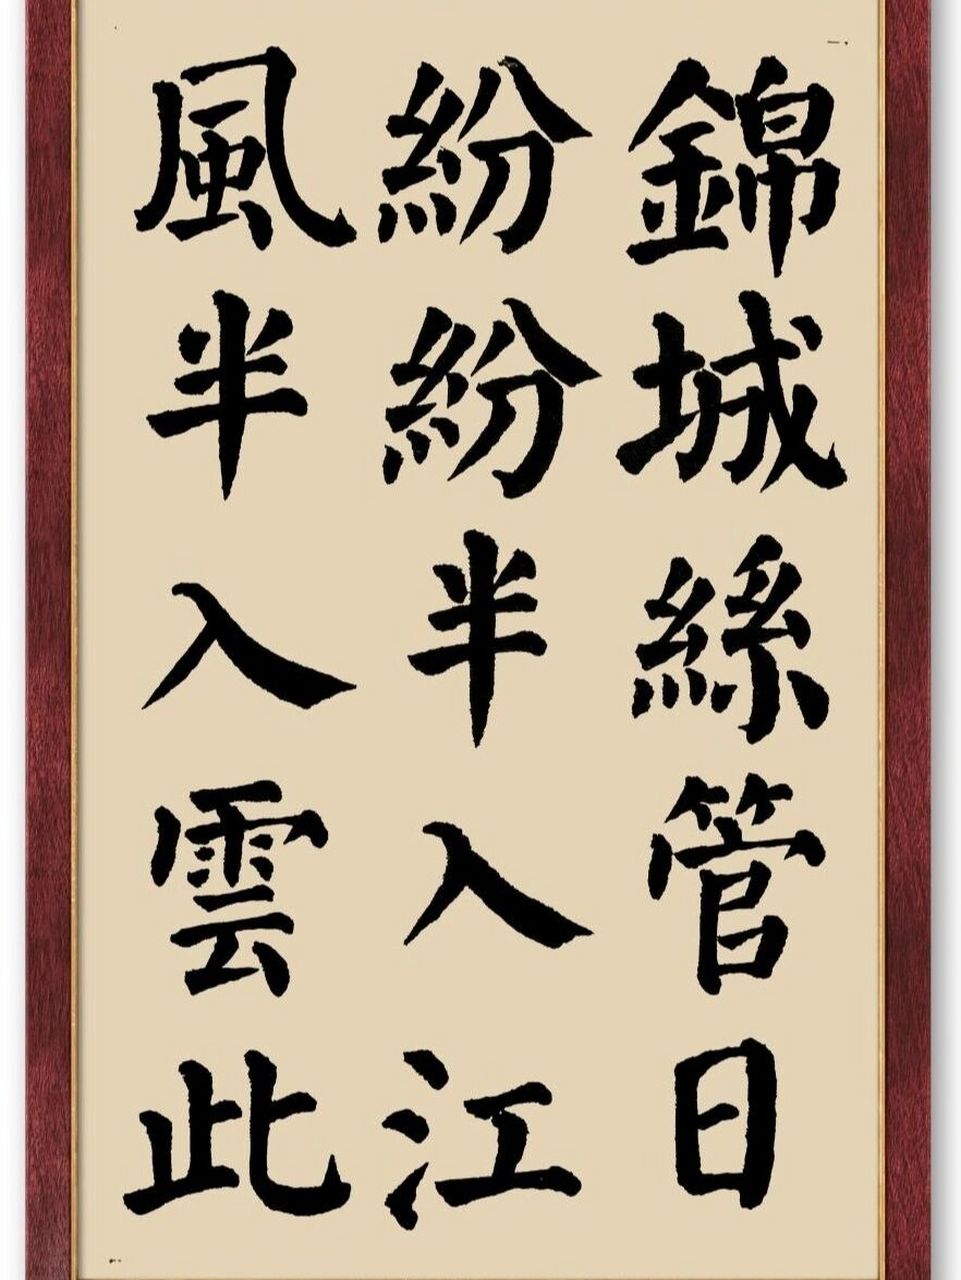 錦城絲管日
紛紛半入江
風半入雲此